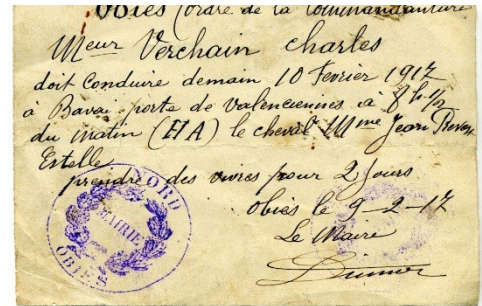 Obies (ordre de la Commandanture
Meur Verchain charles
doit Conduire demain 10 Fevrier 1917
à Bavai porte de Valenciennes à 8 h 1/2
du matin (HA) le cheval Mme Jean
Estelle
prendre des vivres pour 2 jours
Obies le 9-2-17
Le Maire
NORD
MAIRIE
OBIES